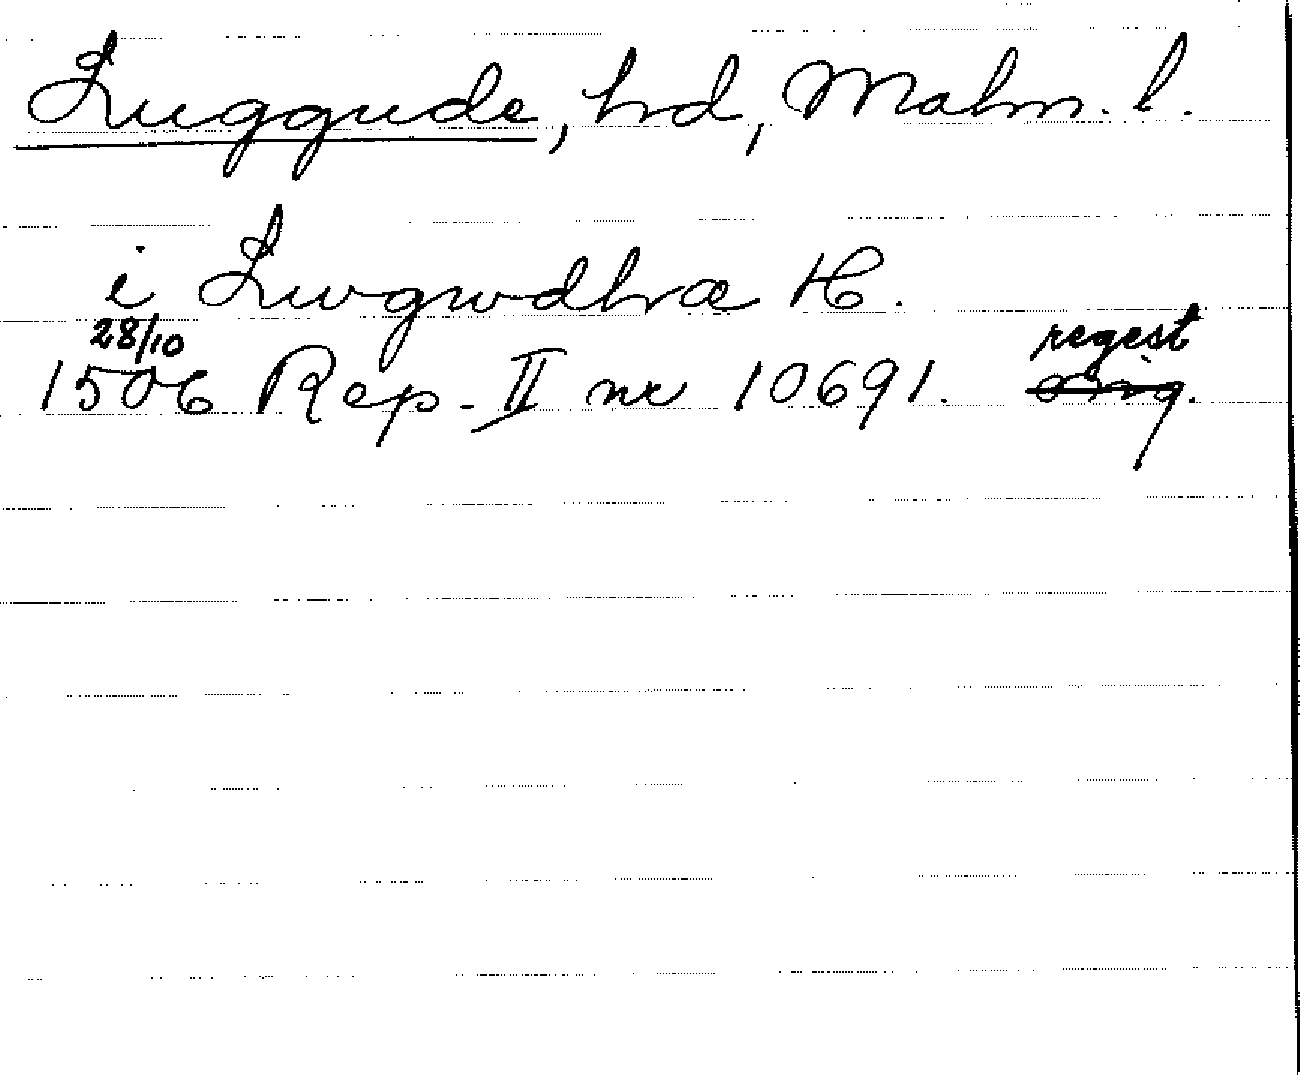 Luggude, hd, Malm. l.
i Lwgwdhræ H.
28/10 regest
1506 Rep. II nr 10691. orig.